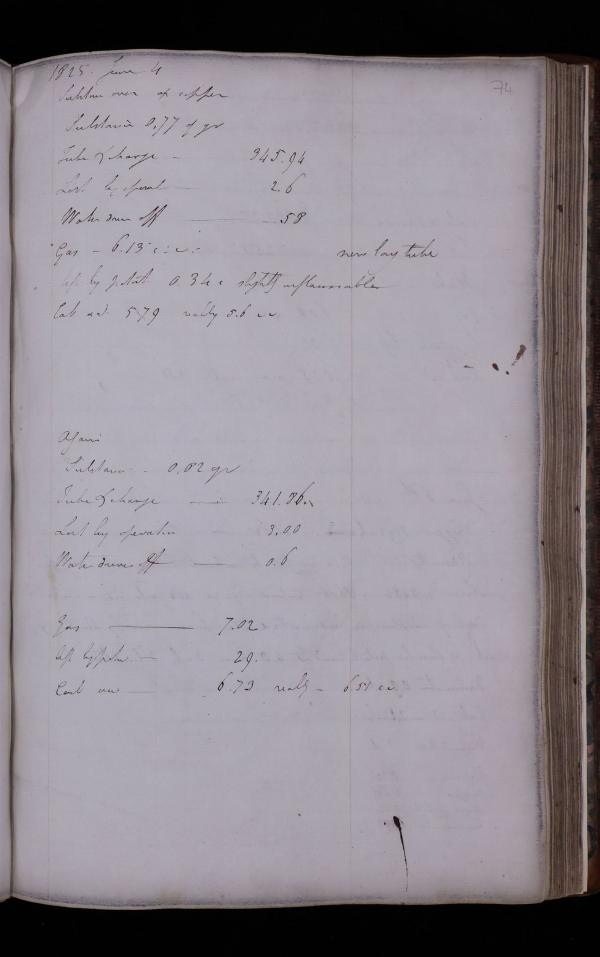 1825. June 4
74
over ox copper
Substance 0.77 of gr
Tube & charge - 345.94
Lost by operat 2.6
Water driven off 58
Gas - 6.13 c: i:
new long tube
left by potash 0.34 c slightly inflammable
Carb ac 5.79 really 5.6
Again
Substance - 0.82 gr
Tube & charge 341.86
Lost by operation 3.00
Water driven off 0.6
Gas 7.02
left by potash 29.
Carb 6.73 really - 6.51